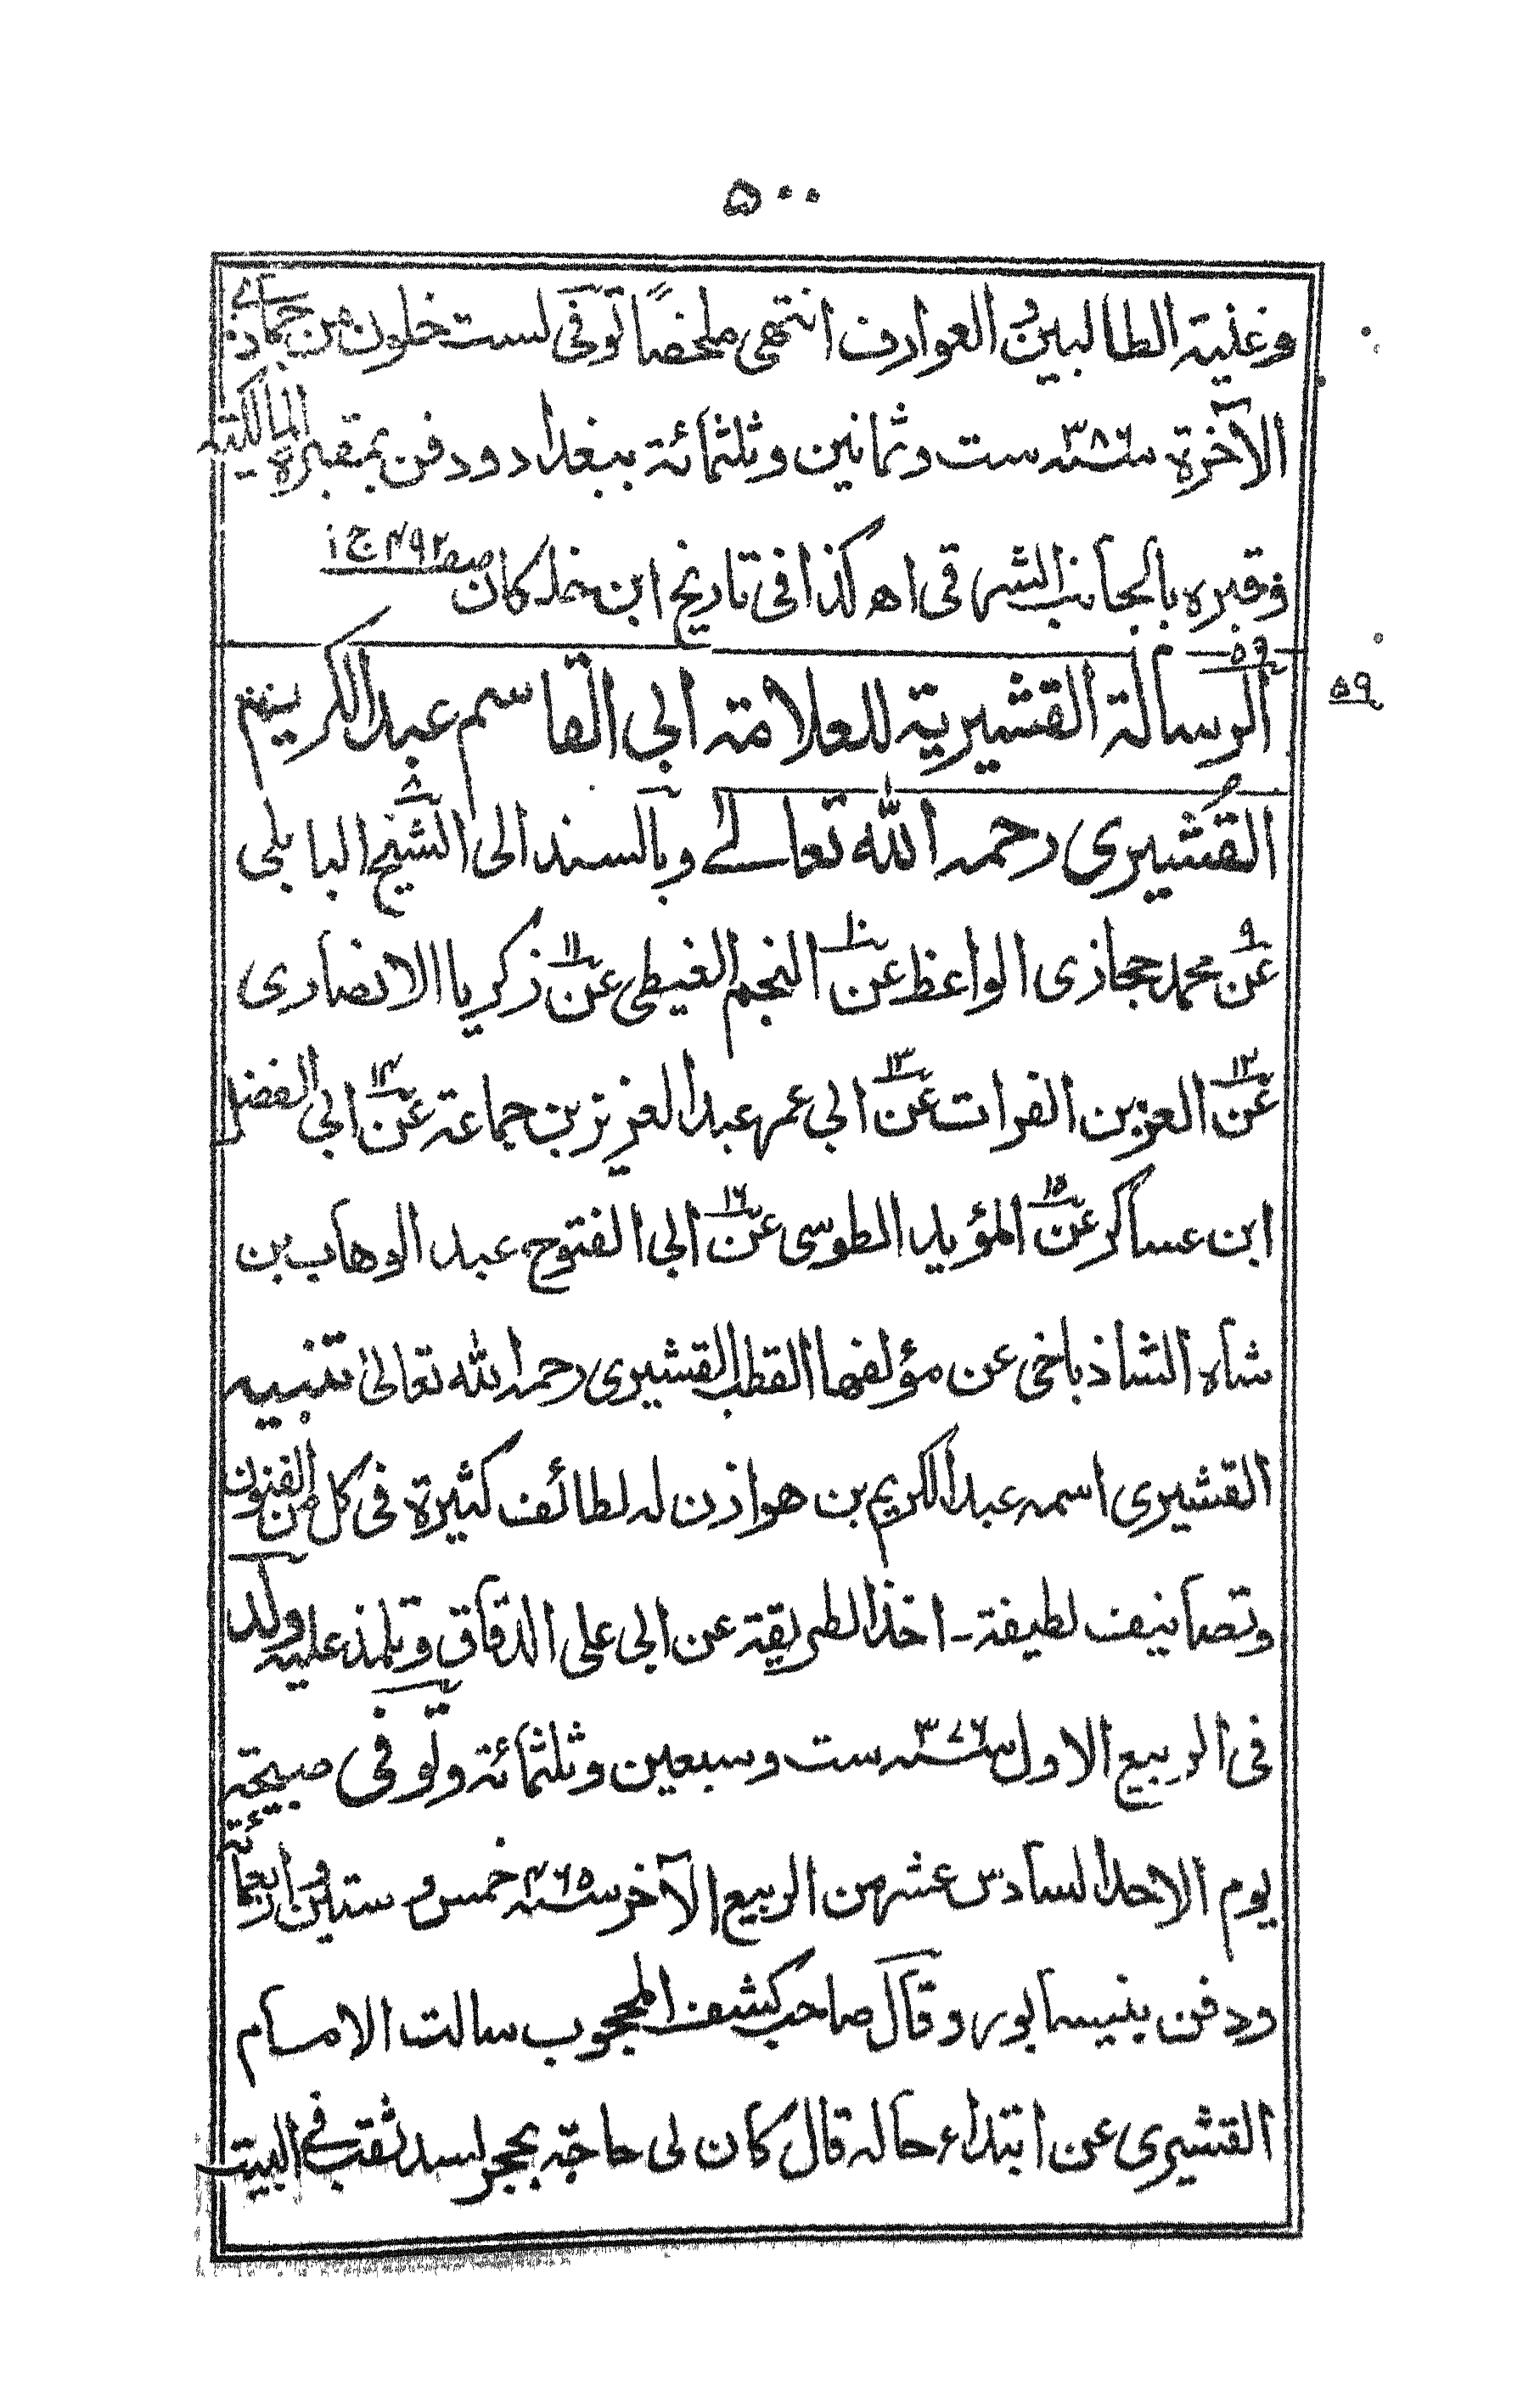 ۵۰۰
وغنية الطالبين والعوارف انتهى ملخصًا توفى لست خلون من جمادى
الآخرة سنة ٣٨٦ ست وثمانين وثلثمائة ببغداد ودفن بمقبرة المالكية
وقبره بالجانب الشرقى اھ كذا فى تاريخ ابن خلكان صـ ۴۹۲ ج ۱
۵۹
الرسالة القشيرية للعلامة ابى القاسم عبد الكريم
۵۹
القُشيرى رحمه الله تعالے وبالسند الى الشيخ البابلى
عن ۹ محمد حجازى الواعظ عن ۱۰ النجم الغيطى عن ۱۱ زكريا الانصارى
عن ۱۲ العز بن الفرات عن ۱۳ ابى عمر عبد العزيز بن جماعة عن ۱۴ ابى الفضل
ابن عساكر عن ۱۵ المؤيد الطوسى عن ۱۶ ابى الفتوح عبد الوهاب بن
شاه الشاذباخى عن مؤلفها القطب القشيرى رحمه الله تعالىٰ تنبيه
القشيرى اسمه عبد الكريم بن هوازن له لطائف كثيرة فى كل من الفنون
وتصانيف لطيفة ـ اخذ الطريقة عن ابى على الدقاق وتلمذ عليه ولد
فى الربيع الاول سنة ٣٧٦ ست وسبعين وثلثمائة وتوفى صبيحة
يوم الاحد السادس عشر من الربيع الآخر سنة ۴۶۵ خمس و ستين واربعمائة
ودفن بنيسابور وقال صاحب كشف المحجوب سالت الامام
القشيرى عن ابتداء حاله قال كان لى حاجة بحجر لسد ثقب فى البيت